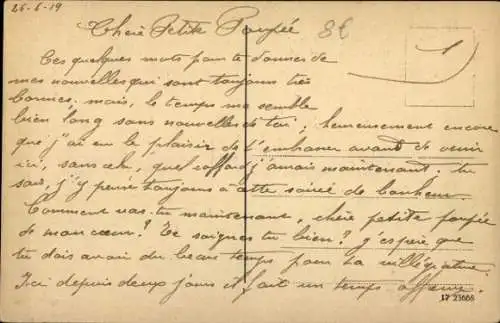 26-6-19
Chère Petite Poupée
8€
1
Ces quelques mots pour te donner de
mes nouvelles qui sont toujours très
bonnes, mais, le temps me semble
bien long sans nouvelles de toi ; heureusement encore
que j'ai eu le plaisir de t'embrasser avant de venir
ici, sans cela, quel cafard j'aurais maintenant. tu
sais, j'y pense toujours à cette soirée de bonheur.
Comment vas-tu maintenant, chère petite poupée
de mon cœur? Te soignes tu bien? j'espère que
tu dois avoir du beau temps pour ta villégiature.
Ici depuis deux jours il fait un temps affreux.
17 23668